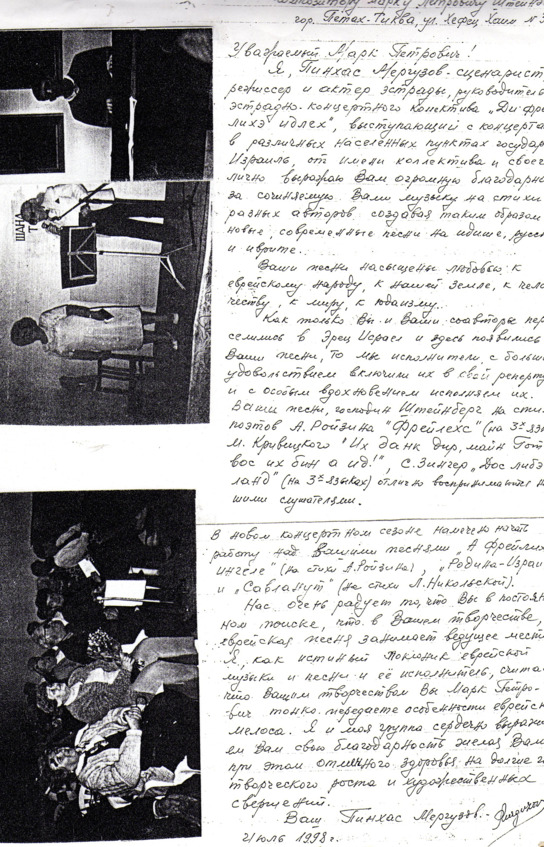 Композитору Марку Петровичу Штейнб
гор. Петах-Тиква, ул. Хефец Хаим № 3
Уважаемый Марк Петрович!
Я, Пинхас Мергузов - сценарист
режиссер и актер эстрады, руководител
эстрадно-концертного колектива „Ди фре
лихэ идлех", выступающий с концерта
в различных населённых пунктах государ
Израиль, от имени коллектива и своег
лично выражаю Вам огромную благодарно
за сочиняемую Вами музыку на стихи
разных авторов, создавая таким образом
новые, современные песни на идише, русск
и иврите.
Ваши песни насыщены любовью к
еврейскому народу, к нашей земле, к чело
честву, к миру, к юдаизму.
Как только Вы и Ваши соавторы пере
селились в Эрец Исраел и здесь появились
Ваши песни, то мы исполнители с больш
удовольствием включили их в свой реперту
и с особым вдохновением исполняем их.
Ваши песни, господин Штейнберг на сти
поэтов А. Ройзина "Фрейлехс" (на 3х язы
М. Кривицкого "Их данк дир, майн Гот
вос их бин а ид!", С. Зингер „Дос либэ
ланд" (на 3х языках) отлично воспринимаются на
шими слушателями.
В новом концертном сезоне намечено начать
работу над Вашими песнями „А Фрейлих
ингеле" (на стихи А. Ройзина), „Родина-Израи
и „Савланут" (на стихи Л. Никольской).
Нас очень радует то, что Вы в постоян
ном поиске, что в Вашем творчестве,
еврейская песня занимает ведущее мест
Я, как истиный поклоник еврейской
музыки и песни и её исполнитель, счита
что Вашим творчеством Вы Марк Петро-
вич тонко передаете особенности еврейск
мелоса. Я и моя группа сердечно выража
ем Вам свою благодарность желая Вам
при этом отличного здоровья на долгие г
творческого роста и художественных
свершений.
Ваш Пинхас Мергузов.-
Июль 1998 г.
ШАНА